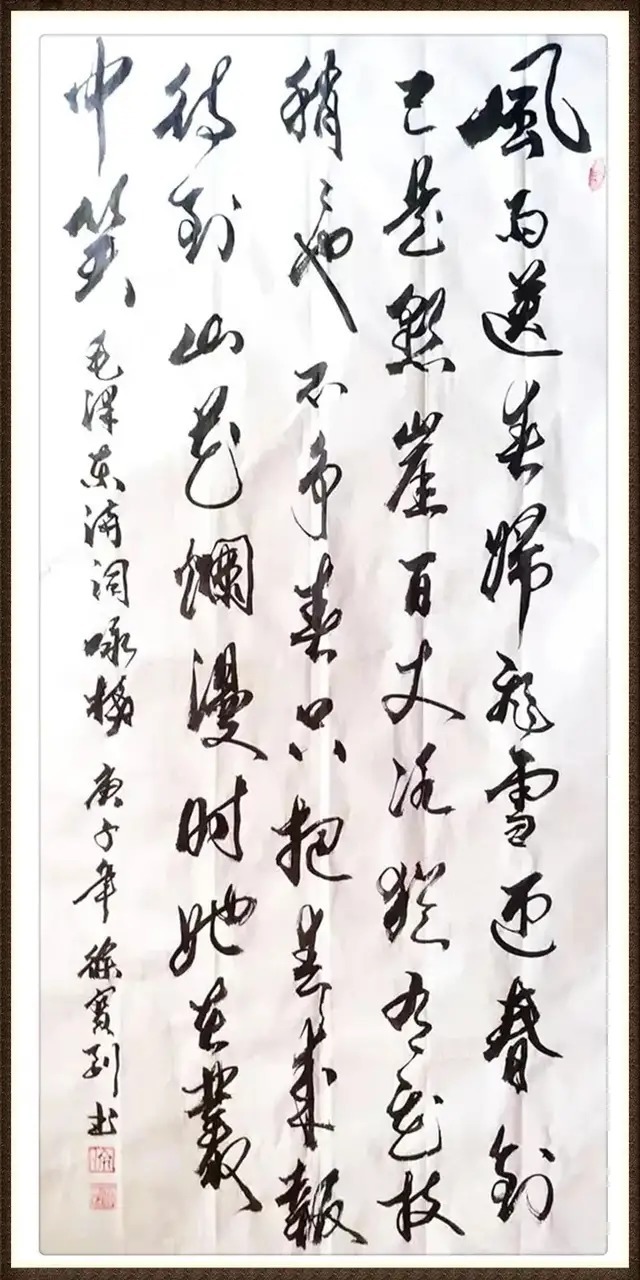 風雨送春歸飛雪迎春到
已是懸崖百丈冰猶有花枝
稍〻也不爭春只把春來報
待到山花爛漫時她在叢
中笑 毛澤東詩詞咏梅 庚子年 徐寶列书